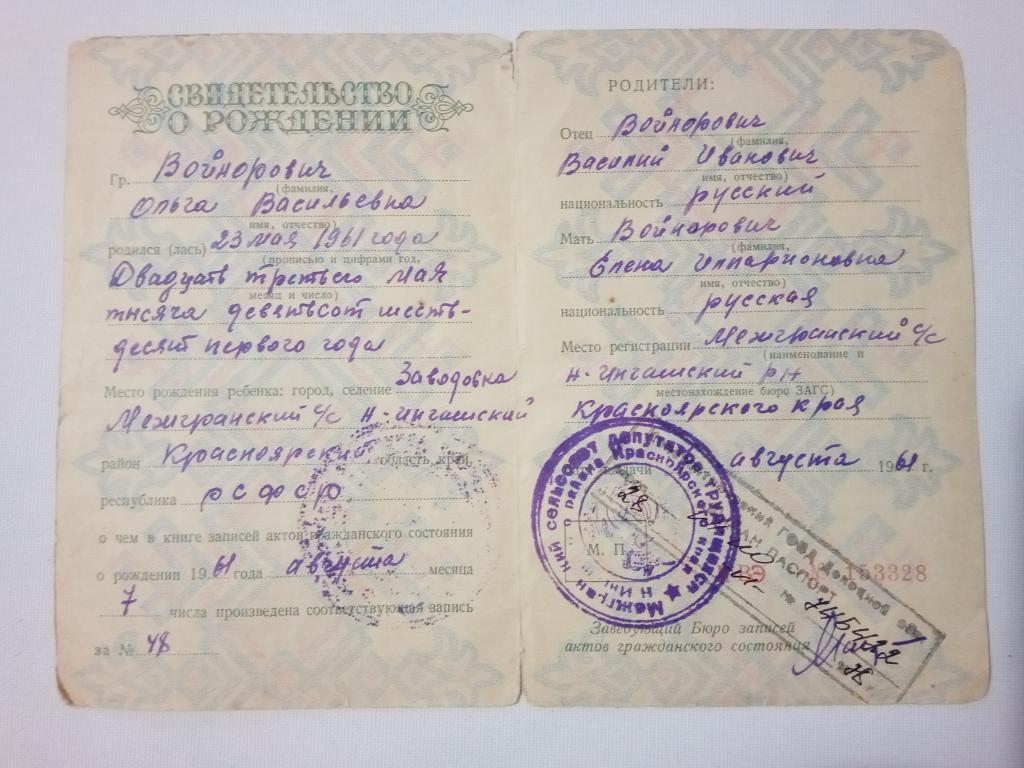 СВИДЕТЕЛЬСТВО
О РОЖДЕНИИ
Гр. Войнорович
(фамилия,
Ольга Васильевна
имя, отчество)
родился (лась) 23 мая 1961 года
(прописью и цифрами год,
Двадцать третьего мая
месяц и число)
тысяча девятьсот шесть-
десят первого года
Место рождения ребенка: город, селение Заводовка
Межгранский с/с Н-Ингашский
район Красноярский область, край,
республика РСФСР
о чем в книге записей актов гражданского состояния
о рождении 1961 года августа месяца
7 числа произведена соответствующая запись
за № 48
РОДИТЕЛИ:
Отец Войнорович
(фамилия,
Василий Иванович
имя, отчество)
национальность русский
Мать Войнарович
(фамилия,
Елена Илларионовна
имя, отчество)
национальность русская
Место регистрации Межгранский с/с
(наименование и
Н-Ингашский р-н
местонахождение бюро ЗАГС)
Красноярского края
выдачи августа 1961 г.
28
М. П.
№ 153328
Межгранский сельсовет депутатов трудящихся
района Красноярского края
ГОВД
ПАСПОРТ
№
Заведующий Бюро записей
актов гражданского состояния